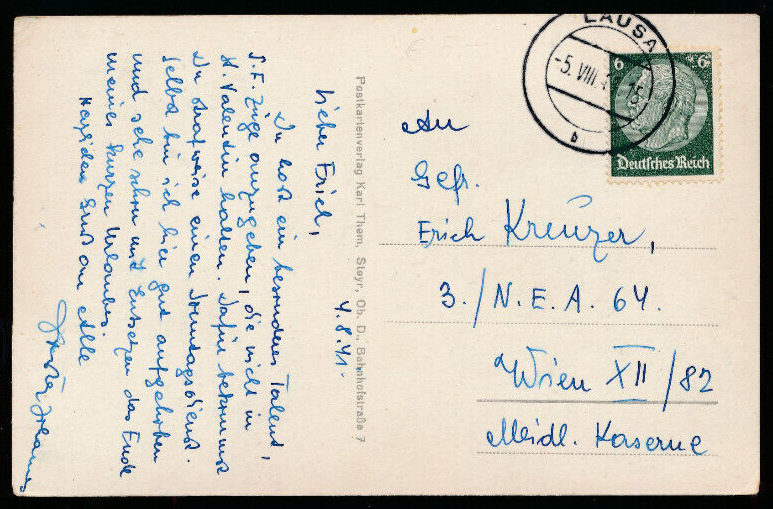 4.8.41.
Lieber Erich,
Du hast ein besonderes Talent,
S.F. Züge anzugeben, die nicht in
St. Valentin halten. Dafür bekommst
Du strafweise einen Sonntagsdienst.
Selbst bin ich hier gut aufgehoben
und sehe schon mit Entsetzen das Ende
meines kurzen Urlaubes.
Herzlichen Gruß an Alle
Postkartenverlag Karl Thom, Steyr, Ob. D., Bahnhofstraße 7
LAUSA
-5. VIII. 4
b
6 6
Deutsches Reich
An
Gefr.
Erich Kreuzer,
3./N.E.A. 64.
Wien XII/82
Meidl. Kaserne